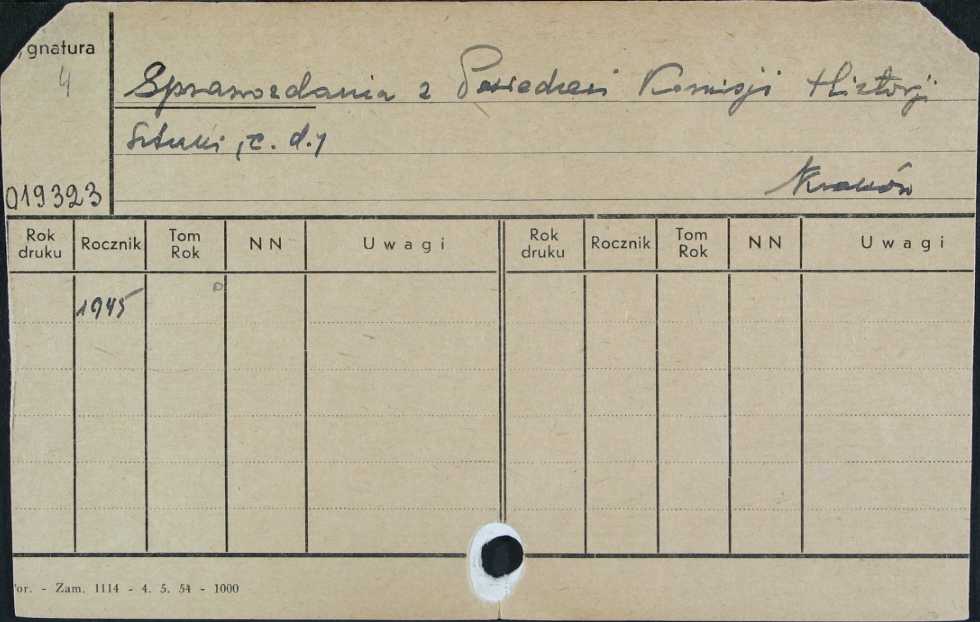 gnatura
4
Sprawozdania z Posiedzeń Komisji Historji
Sztuki, c. d.
Kraków
019323
Rok druku Rocznik Tom Rok N N Uwagi Rok druku Rocznik Tom Rok N N Uwagi
1945
or. - Zam. 1114 - 4. 5. 54 - 1000